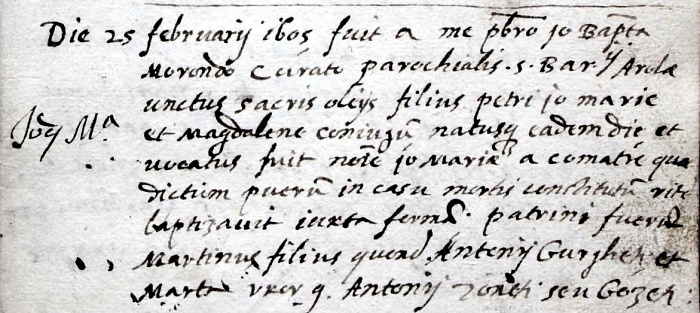 Die 25 februarij 1605 fuit a me pbro jo Bapta
Morondo Curato parochialis. s. Bar.ij Arolæ
unctus sacris oleijs filius petri jo marie
Joes M.a
et Magdalene coniugũ natusq eadem die et
vocatus fuit noĩe jo Maria a comatre quæ
dictum puerũ in casu mortis constitutũ rite
baptizavit iuxta formã. patrini fuerũt
Martinus filius quond Antonij et
Marta uxor q. Antonij seu